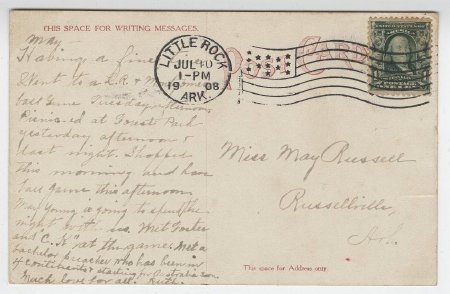 THIS SPACE FOR WRITING MESSAGES.
May -
Having a fine
Went to a L.R. &
ball game Tuesday afternoon.
Picnic-ed at Forest Park
yesterday afternoon &
last night. Shopped
this morning and have
ball game this afternoon.
May Young is going to spend the
night with us. Met Foster
and C. K" at the game. Met a
bachelor preacher who has been in
continents & starting for Australia soon.
Much love for all. Ruth.
LITTLE ROCK
JUL
1-PM
1908
ARK.
POST CARD
Miss May Russell
Russellville,
Ark.
This space for Address only.